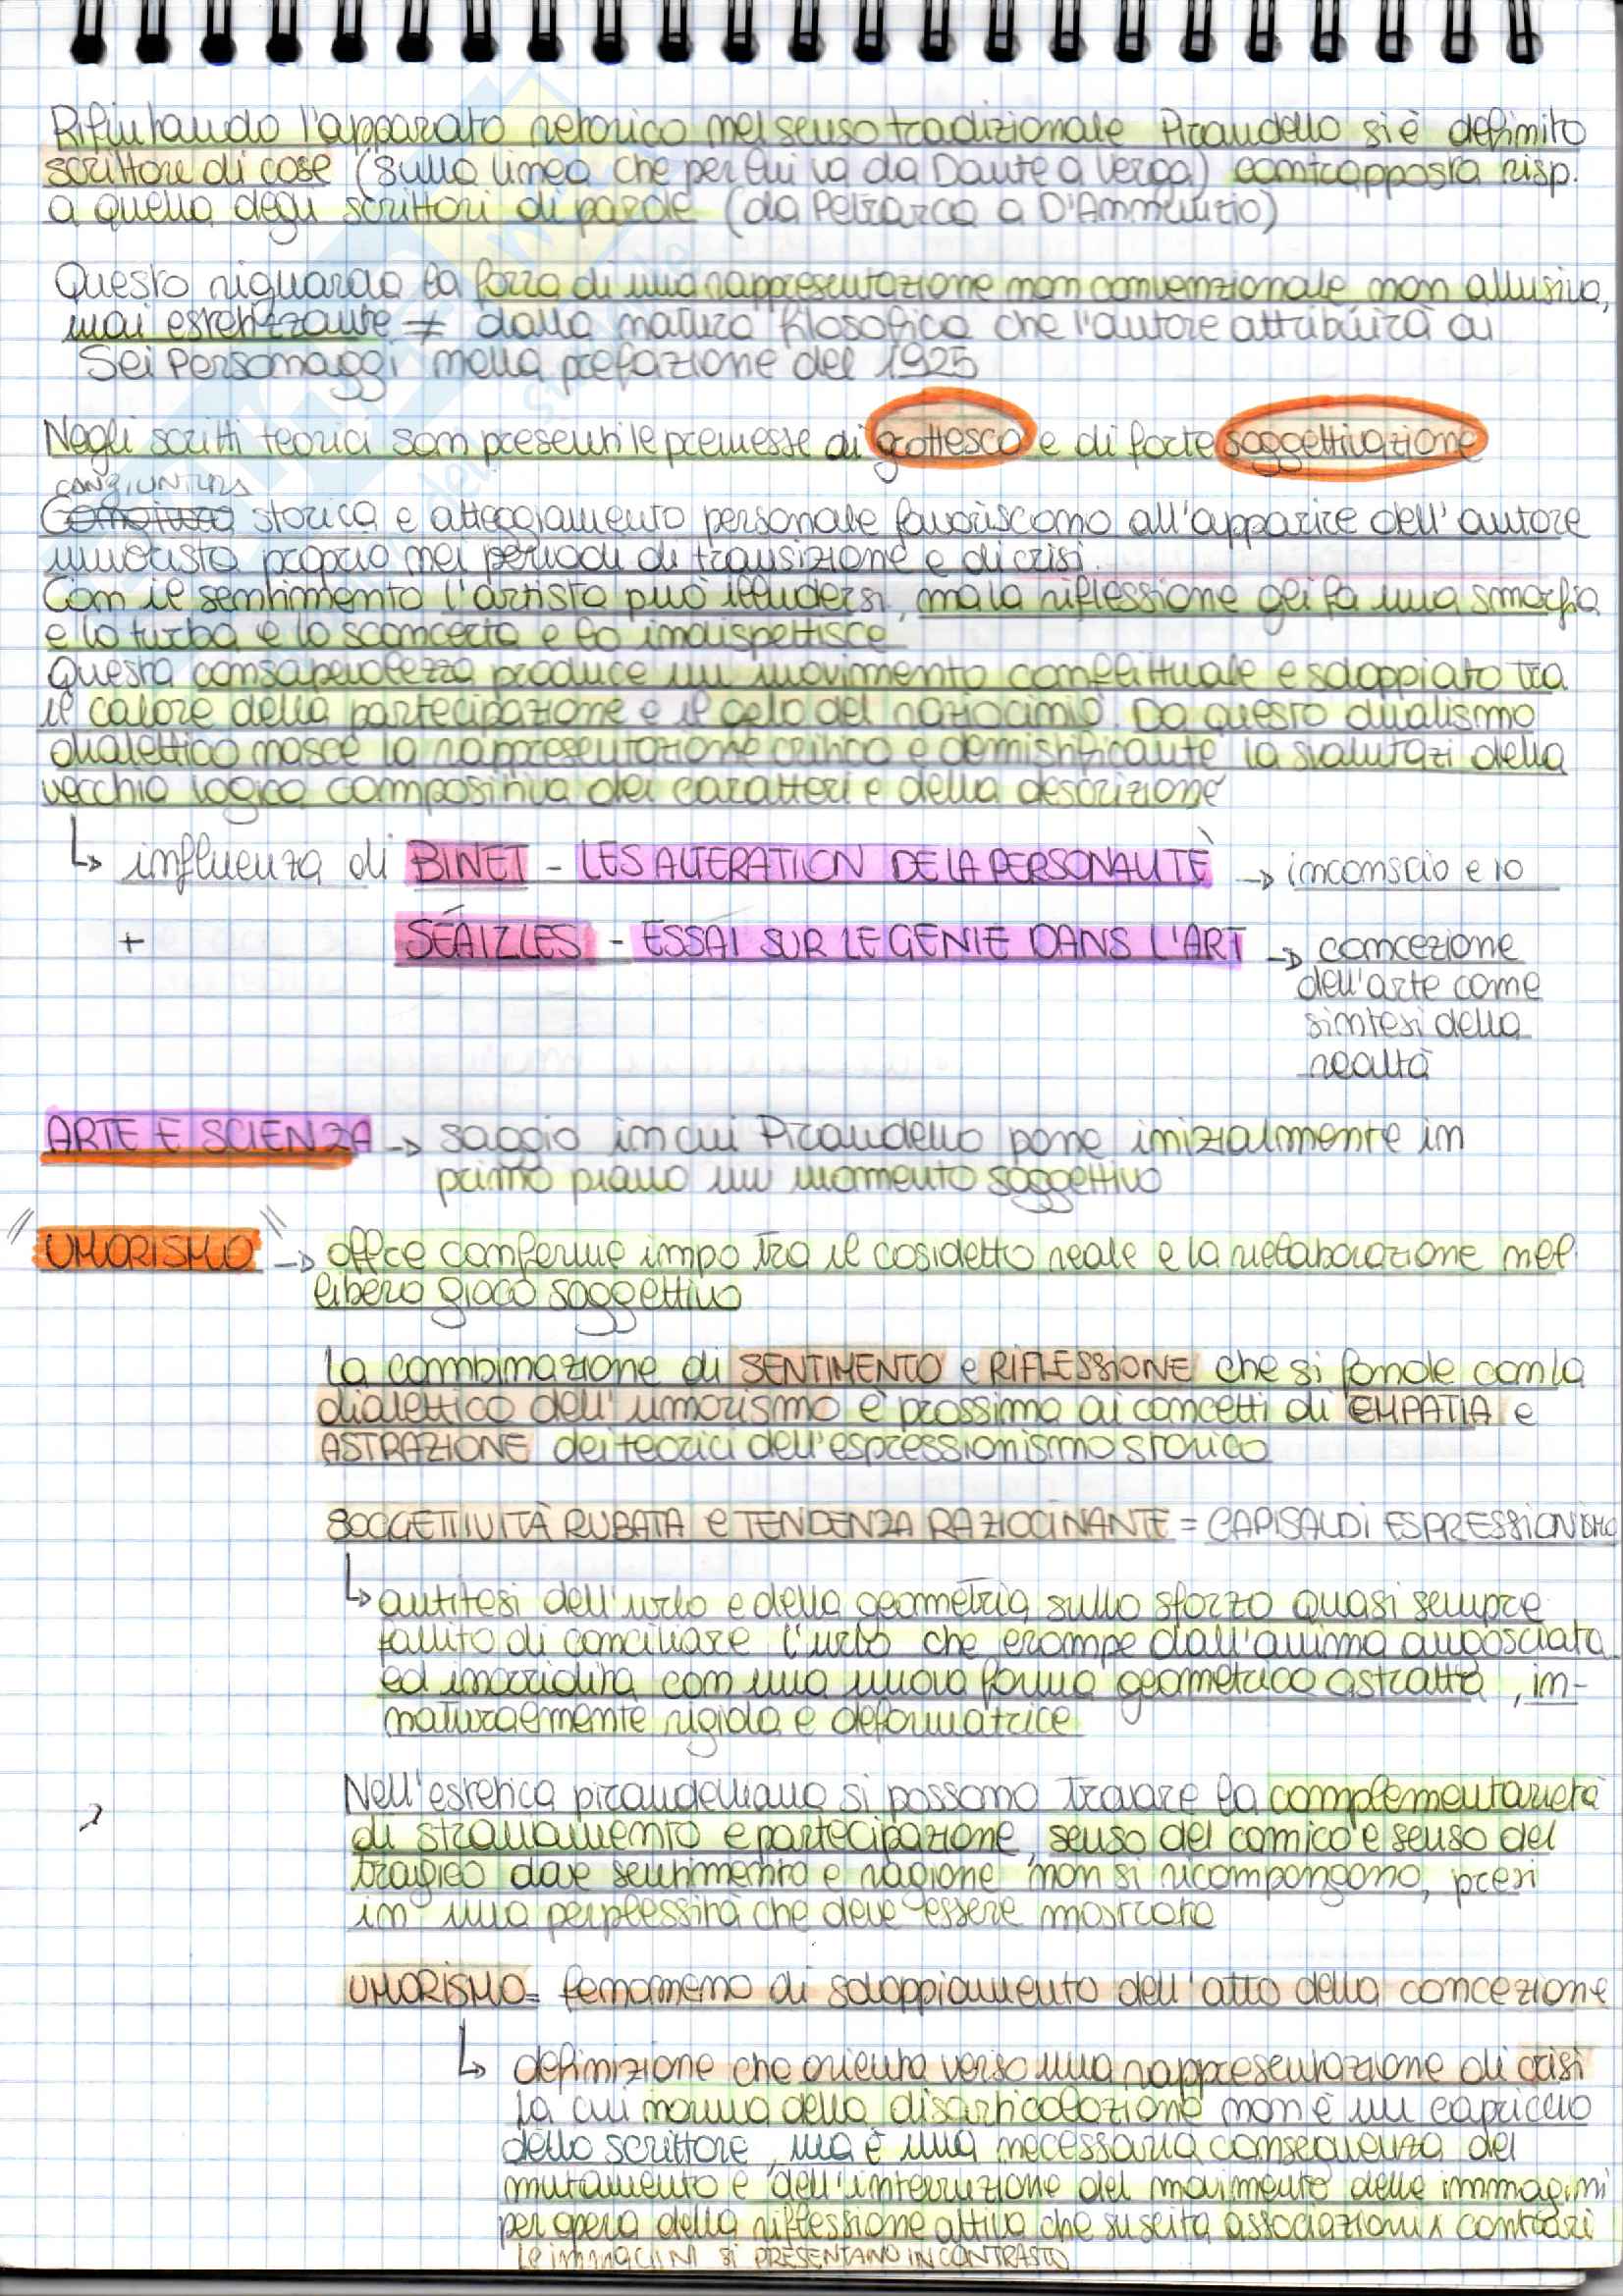 Rifiutando l'apparato retorico nel senso tradizionale Pirandello si è definito
scrittore di cose (sulla linea che per lui va da Dante a Verga) contrapposta risp.
a quella degli scrittori di parole (da Petrarca a D'Annunzio)
Questo riguarda la forza di una rappresentazione non convenzionale non allusiva,
mai estetizzante ≠ dalla natura filosofica che l'autore attribuirà ai
Sei Personaggi nella prefazione del 1925
Negli scritti teorici son presenti le premesse di grottesco e di forte soggettivazione
CONGIUNTURA
storica e atteggiamento personale favoriscono all'apparire dell'autore
umorista proprio nei periodi di transizione e di crisi.
Con il sentimento l'artista può illudersi, ma la riflessione gli fa una smorfia
e lo turba e lo sconcerta e lo indispettisce
Questa consapevolezza produce un movimento conflittuale e sdoppiato tra
il calore della partecipazione e il gelo del raziocinio. Da questo dualismo
dialettico nasce la rappresentazione critica e demistificante la svalutazi della
vecchia logica compositiva dei caratteri e della descrizione
↳ influenza di BINET - LES ALTERATION DE LA PERSONALITÈ → inconscio e io
+ SÉAIZLES - ESSAI SUR LE GENIE DANS L'ART → concezione
dell'arte come
sintesi della
realtà
ARTE E SCIENZA → saggio in cui Pirandello pone inizialmente in
primo piano un momento soggettivo
"UMORISMO" → offre conferme impo tra il cosidetto reale e la rielaborazione nel
libero gioco soggettivo
la combinazione di SENTIMENTO e RIFLESSIONE che si fonde con la
dialettica dell'umorismo è prossima ai concetti di EMPATIA e
ASTRAZIONE dei teorici dell'espressionismo storico
SOGGETTIVITÀ RUBATA e TENDENZA RAZIOCINANTE = CAPISALDI ESPRESSIONISMO
↳ antitesi dell'urlo e della geometria sullo sforzo quasi sempre
fallito di conciliare l'urlo che erompe dall'anima angosciata
ed inorridita con una nuova forma geometrica astratta, in-
naturalmente rigida e deformatrice
Nell'estetica pirandelliana si possono trovare la complementarietà
di straniamento e partecipazione, senso del comico e senso del
tragico dove sentimento e ragione non si ricompongono, presi
in una perplessità che deve essere mostrata
UMORISMO = fenomeno di sdoppiamento dell'atto della concezione
↳ definizione che orienta verso una rappresentazione di crisi
la cui norma della disarticolazione non è un capriccio
dello scrittore, ma è una necessaria conseguenza del
mutamento e dell'interruzione del movimento delle immagini
per opera della riflessione attiva che suscita associazioni x contrari
le immagini si PRESENTANO IN CONTRASTO